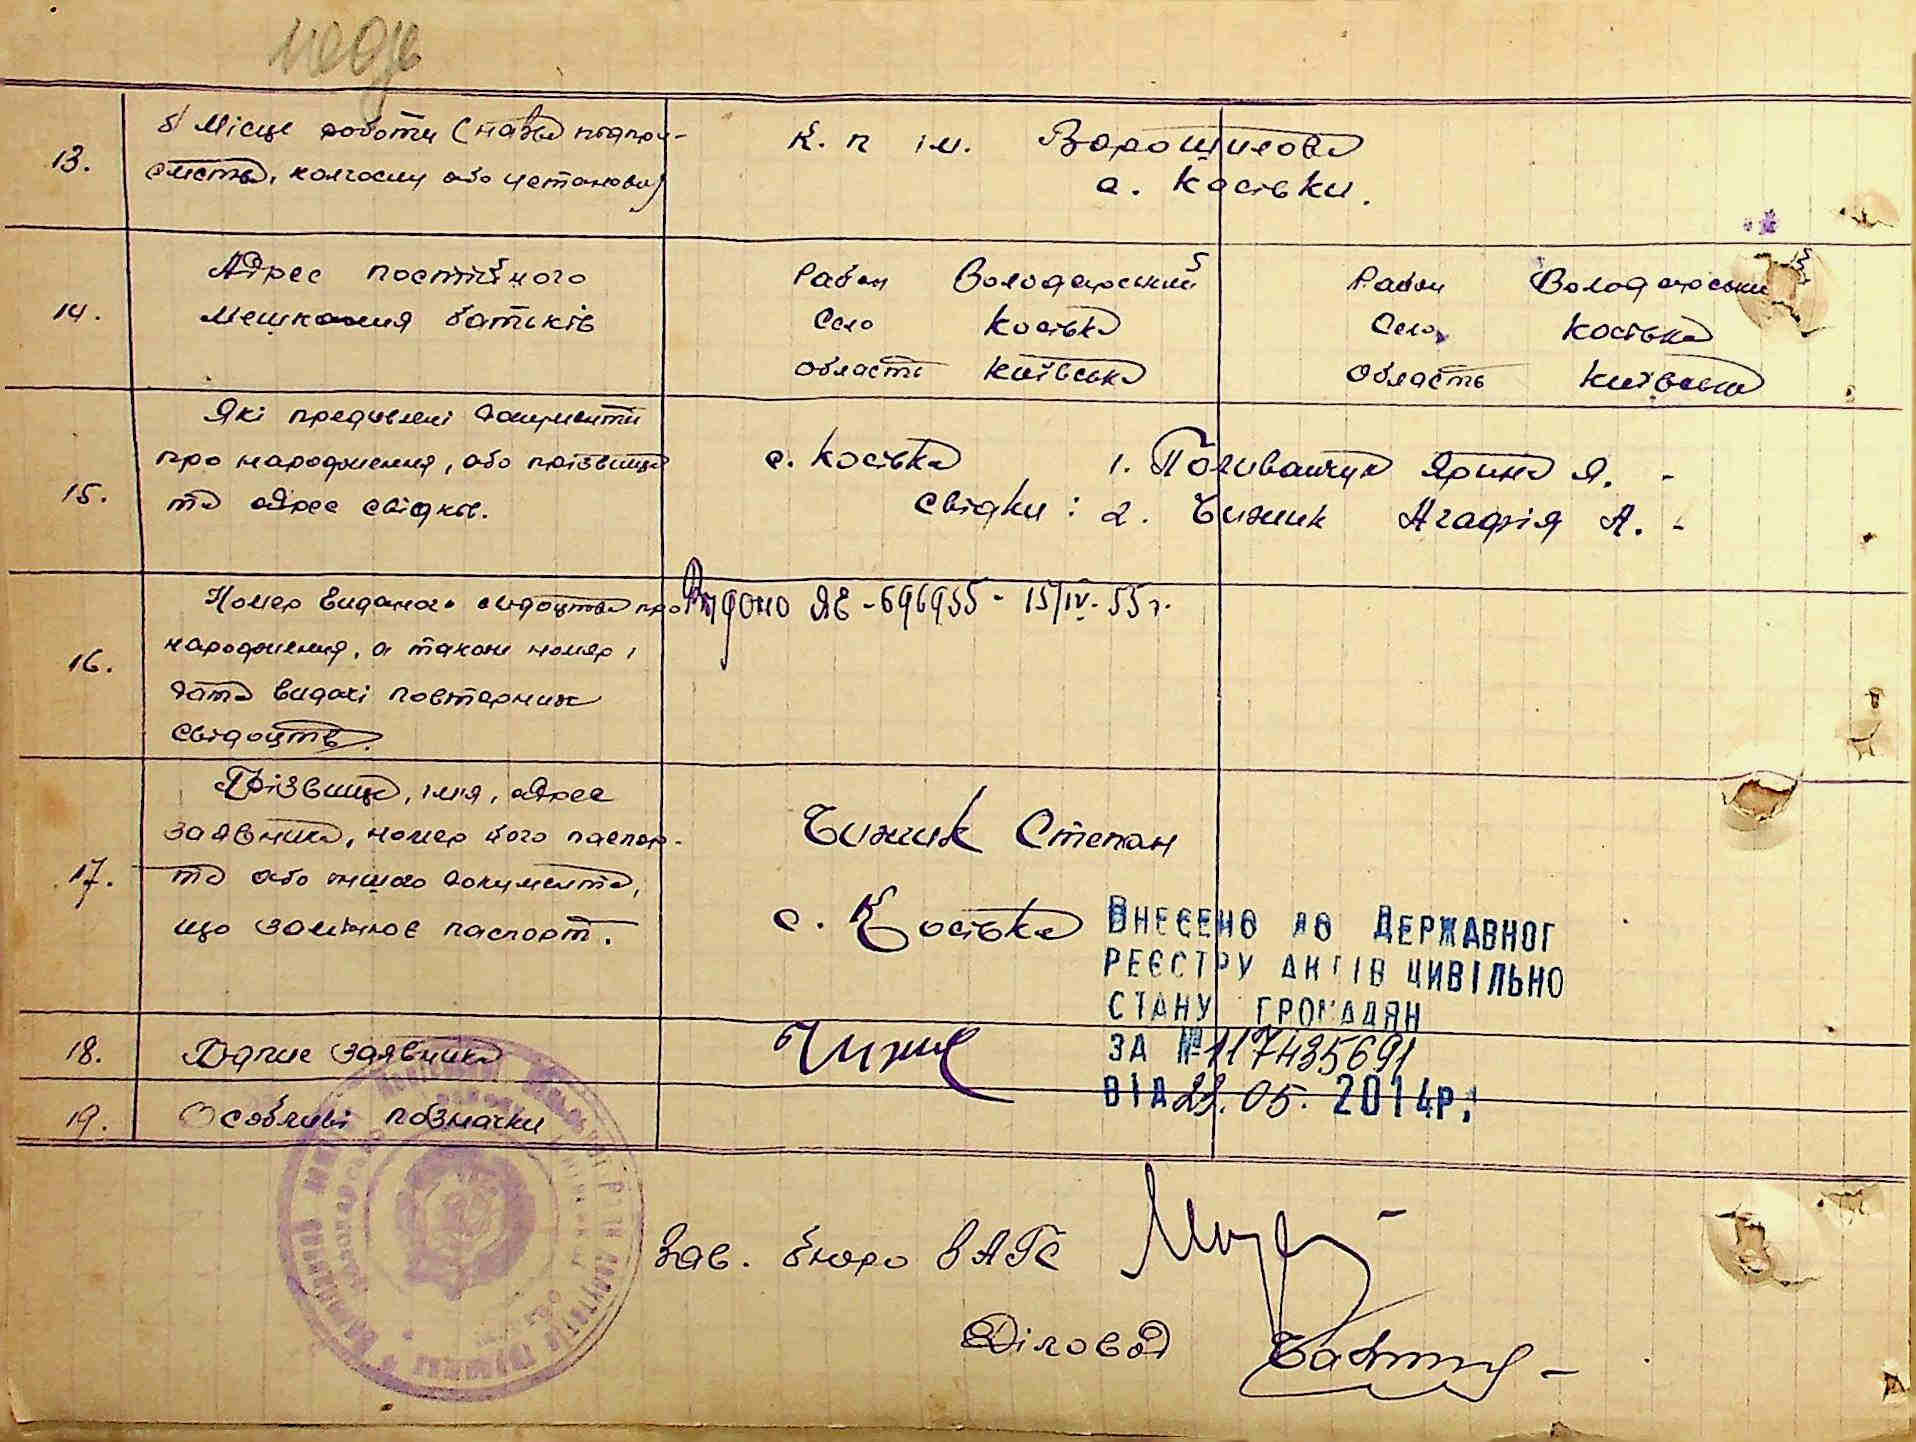 13.
б/ Місце роботи (назва підпри-
ємства, колгоспу або установи)
К. п ім. Ворошилова
с. Косівки.
14.
Адрес постійного
мешкання батьків
Район Володарський
Село Косівка
Область Київська
Район Володарський
Село Косівка
Область Київська
15.
Які предявлені документи
про народження, або прізвище
та адрес свідків.
с. Косівка 1. Поливанчук Ярина Я. -
Свідки: 2. Чижик Агафія А. -
16.
Номер виданого свідоцтва про
народження, а також номер і
дата видачі повторних
свідоцтв.
Видано ЯЕ - 696955 - 15/IV. 55 г.
17.
Прізвище, імя, адрес
заявника, номер його паспор-
та або іншого документа,
що замінює паспорт.
Чижик Степан
с. Косівка
ВНЕСЕНО ДО ДЕРЖАВНОГ
РЕЄСТРУ АКТІВ ЦИВІЛЬНО
СТАНУ ГРОМАДЯН
ЗА №117435691
ВІД 23.05. 2014р.
18.
Підпис заявника
Чижик
19.
Особливі позначки
Зав. бюро ЗАГС
Діловод